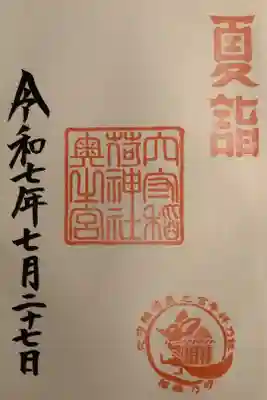 夏詣
穴守稲
荷神社
奥之宮
令和七年七月二十七日